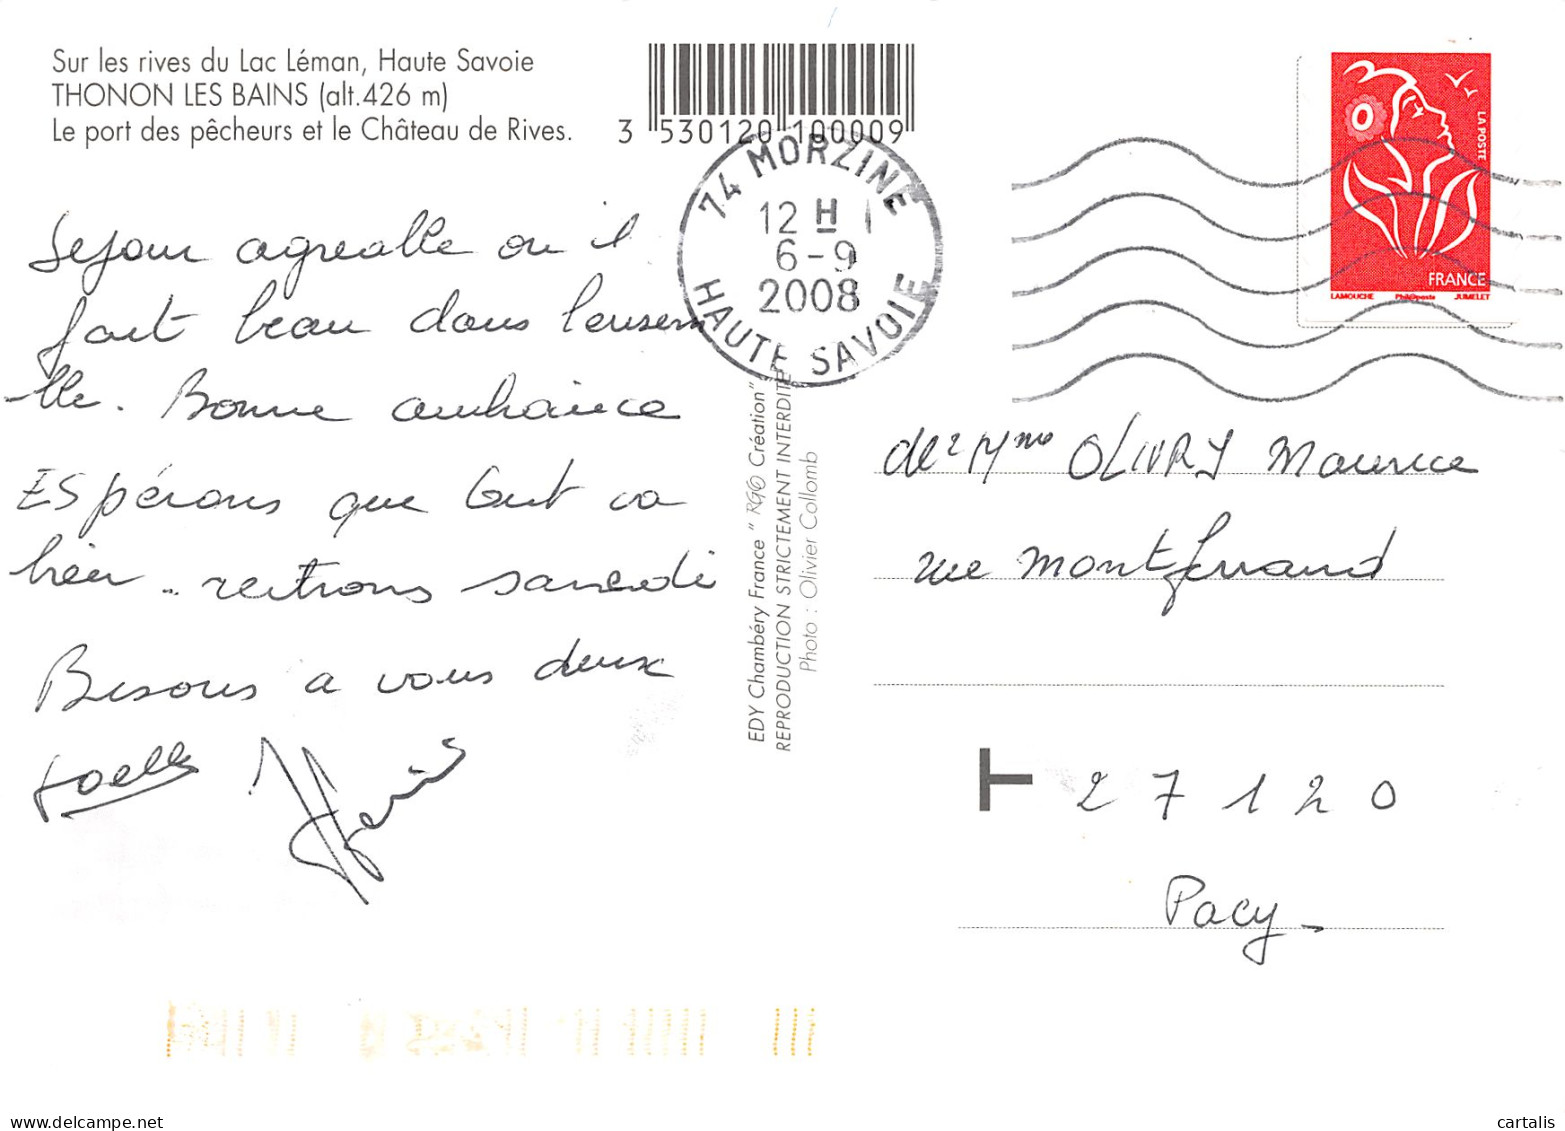 Sur les rives du Lac Léman, Haute Savoie
THONON LES BAINS (alt.426 m)
Le port des pêcheurs et le Château de Rives.
3 530120 100009
74 MORZINE
12 H
6-9
2008
HAUTE SAVOIE
LA POSTE
FRANCE
LAMOUCHE Phil@poste JUMELET
Sejour agreable ou il
fait beau dans l'ensem
-lle. Bonne ambiance
ESpérons que tout va
bien .. rentrons samedi
Bisous a vous deux
Joelle
EDY Chambéry France " RGO Création"
REPRODUCTION STRICTEMENT INTERDITE
Photo : Olivier Collomb
OLIVRY Maurice
rue Montferrand
T 27120
Pacy
cartalis